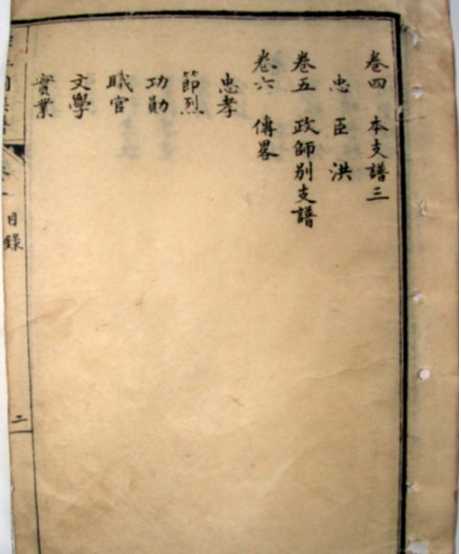 卷四 本支譜三
忠 臣 洪
卷五 政師別支譜
卷六 傳畧
忠孝
節烈
功勛
職官
文學
實業
目錄
二